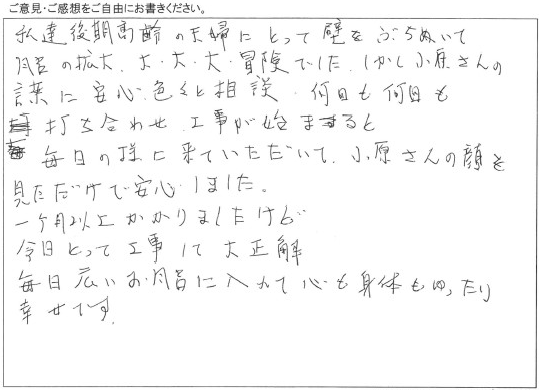 ご意見・ご感想をご自由にお書きください。
私達後期高齢の夫婦にとって壁をぶちぬいて
風呂の拡大、大・大・大・冒険でした。しかし小原さんの
言葉に安心、色々と相談、何回も何回も
打ち合わせ、工事が始まると
毎日の様に来ていただいて、小原さんの顔を
見ただけで安心しました。
一ヶ月以上かかりましたけど
今日とって工事して大正解
毎日広いお風呂に入れて心も身体もゆったり
幸せです。